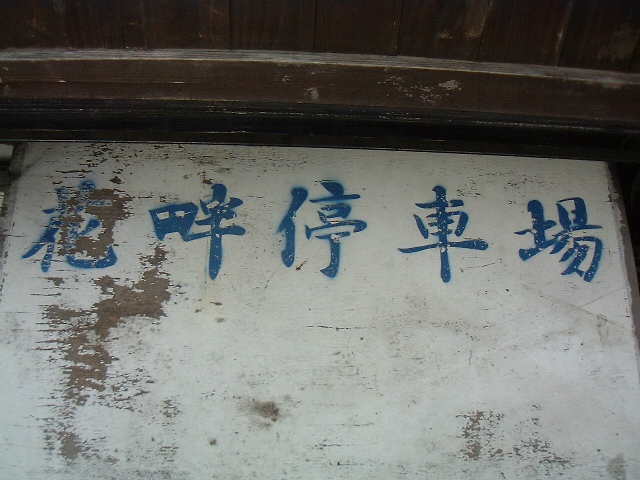 花畔停車場